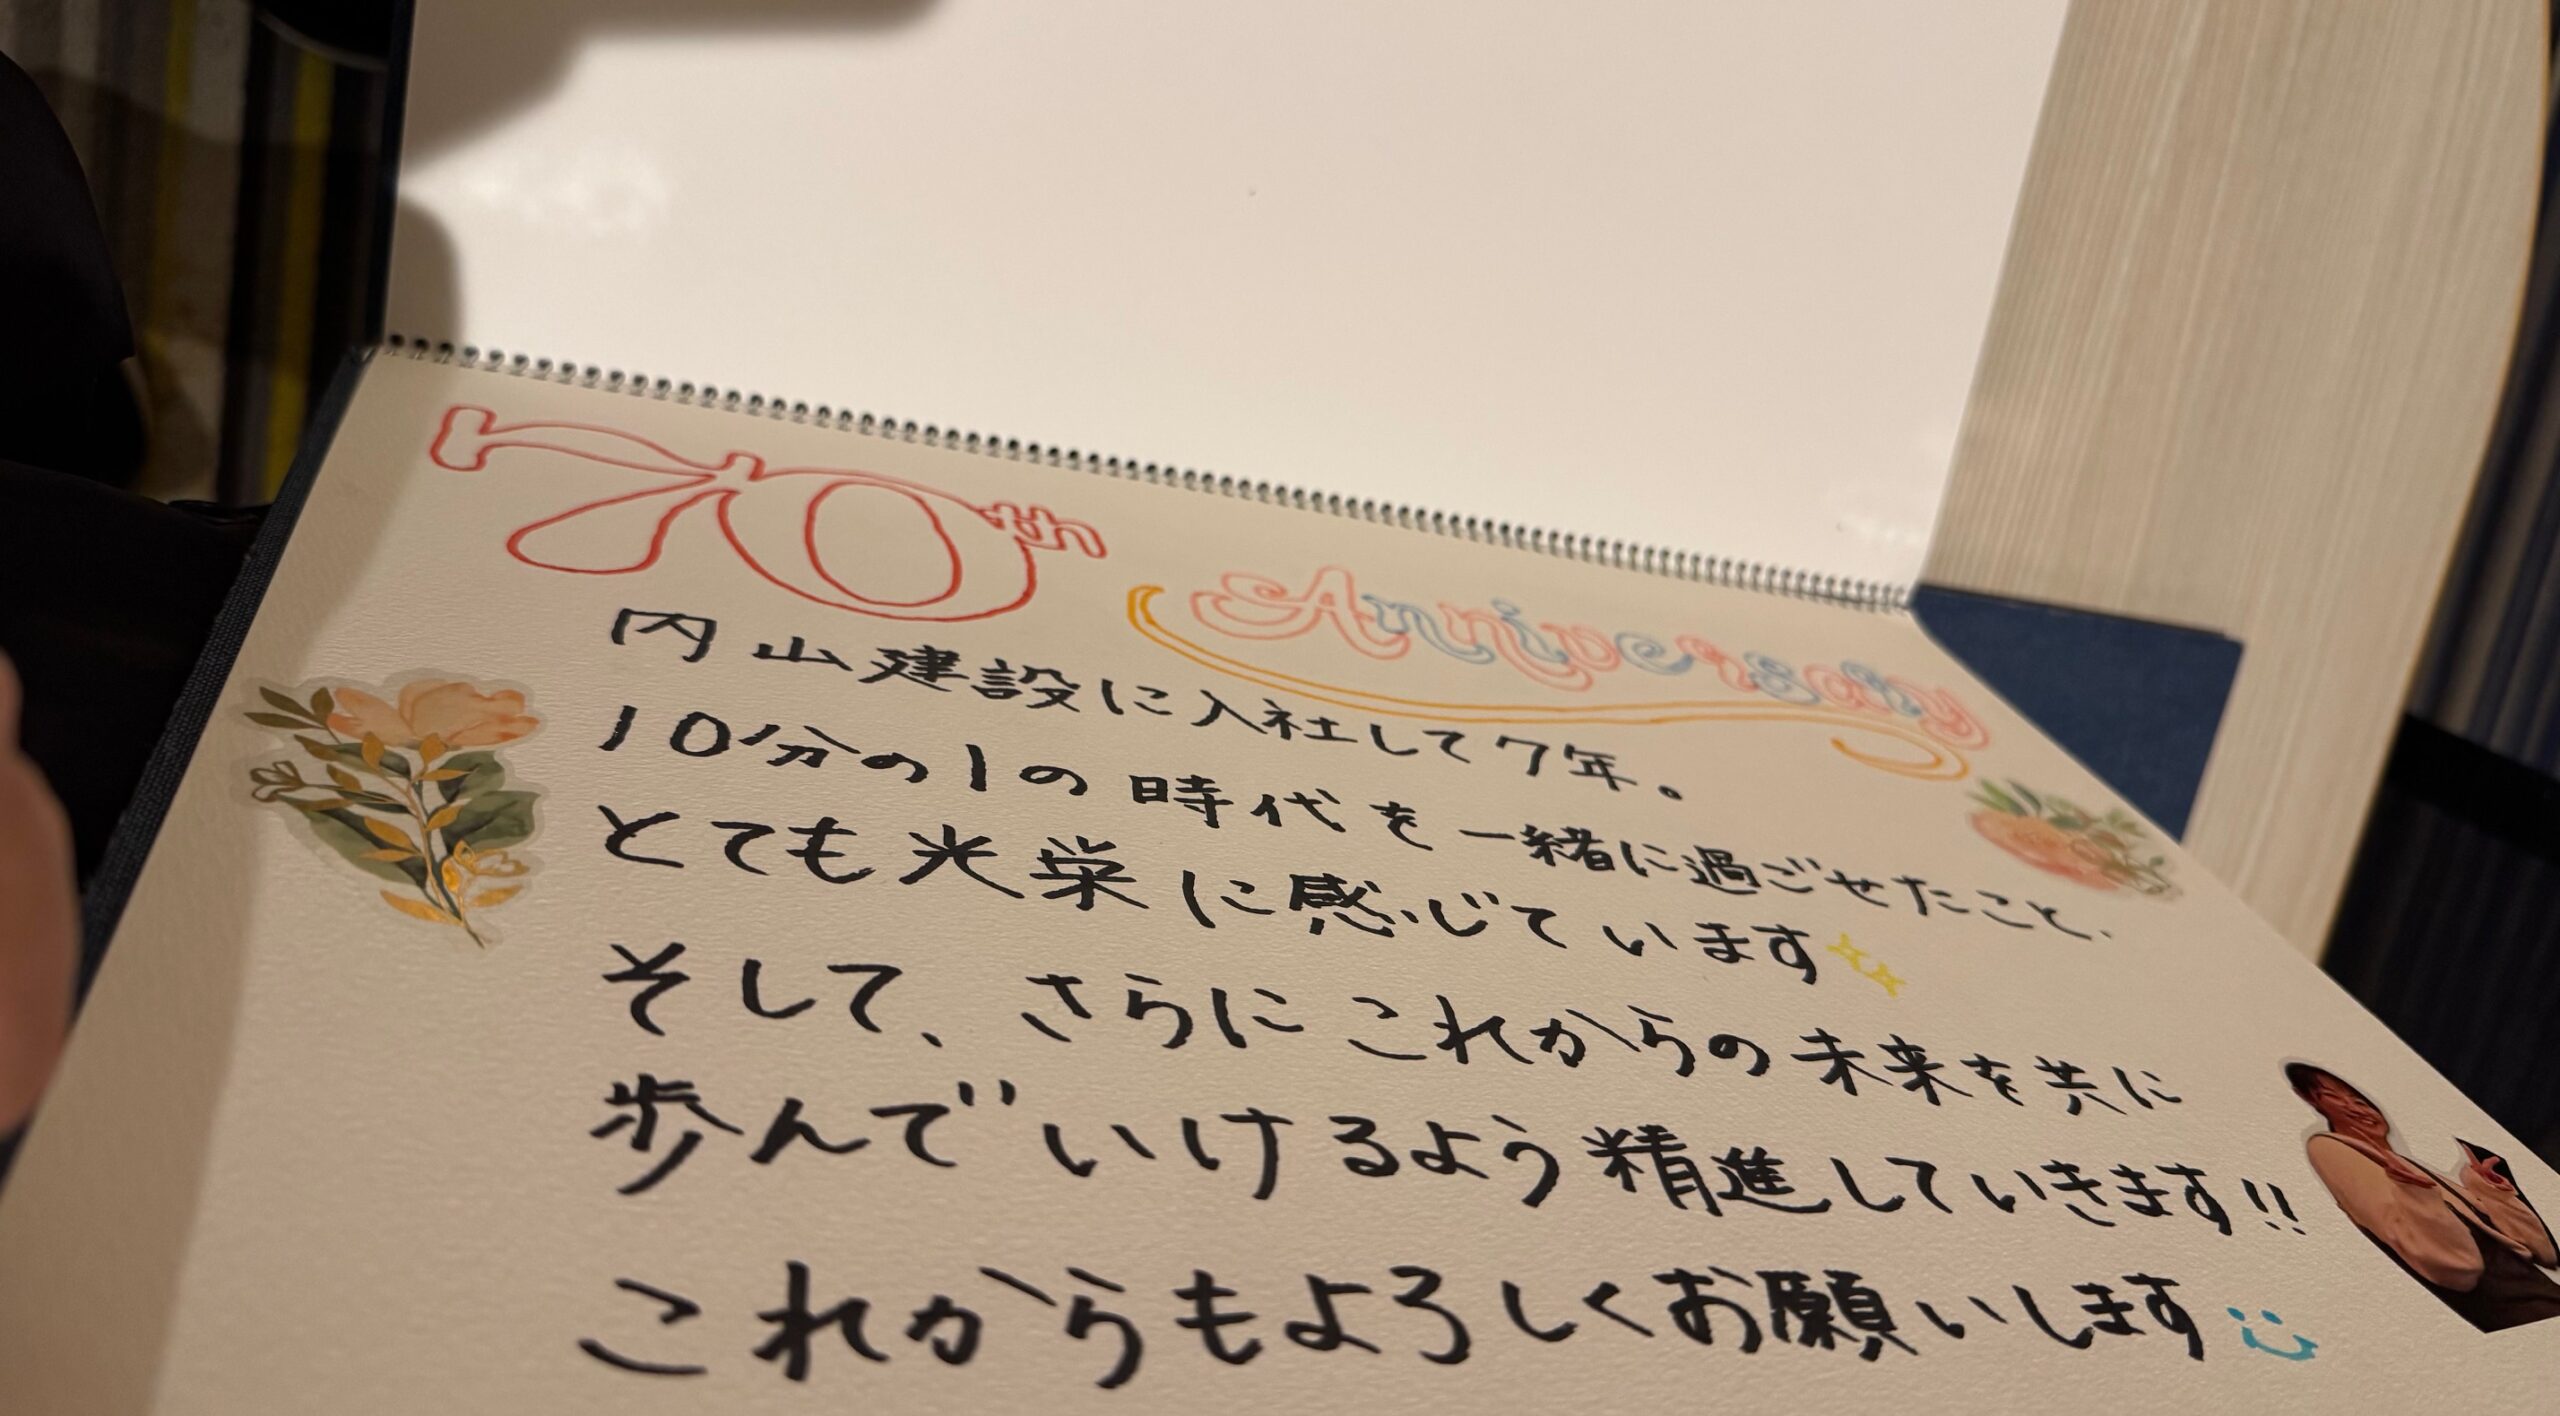 70th Anniversary
内山建設に入社して7年。
10分の1の時代を一緒に過ごせたこと、
とても光栄に感じています
そして、さらにこれからの未来を共に
歩んでいけるよう精進していきます!!
これからもよろしくお願いします